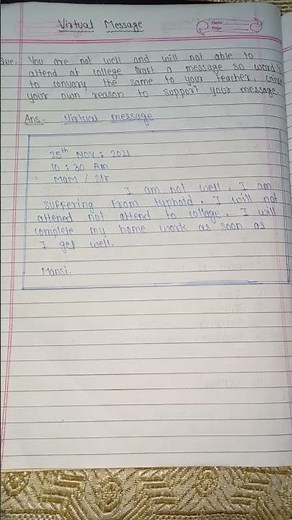 Virtual Message
Que: You are not well and will not able to
attend at college Draft a message 50 words
to convey the same to your teacher,
your own reason to support your message
Ans:- Virtual message
25th Nov : 2021
10 : 30 Am
Mam / Sir
I am not well, I am
suffering from typhoid. I will not
attened not attend to college. I will
complete my home work as soon as
I get well.
Mansi